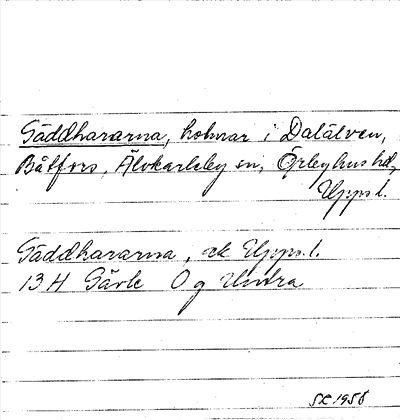 Gäddhararna, holmar i Dalälven,
Båtfors, Älvkarleby sn, Örbyhus hd,
Upps.l.
Gäddhararna, ek Upps.l.
13H Gävle O g Untra
SE 1958